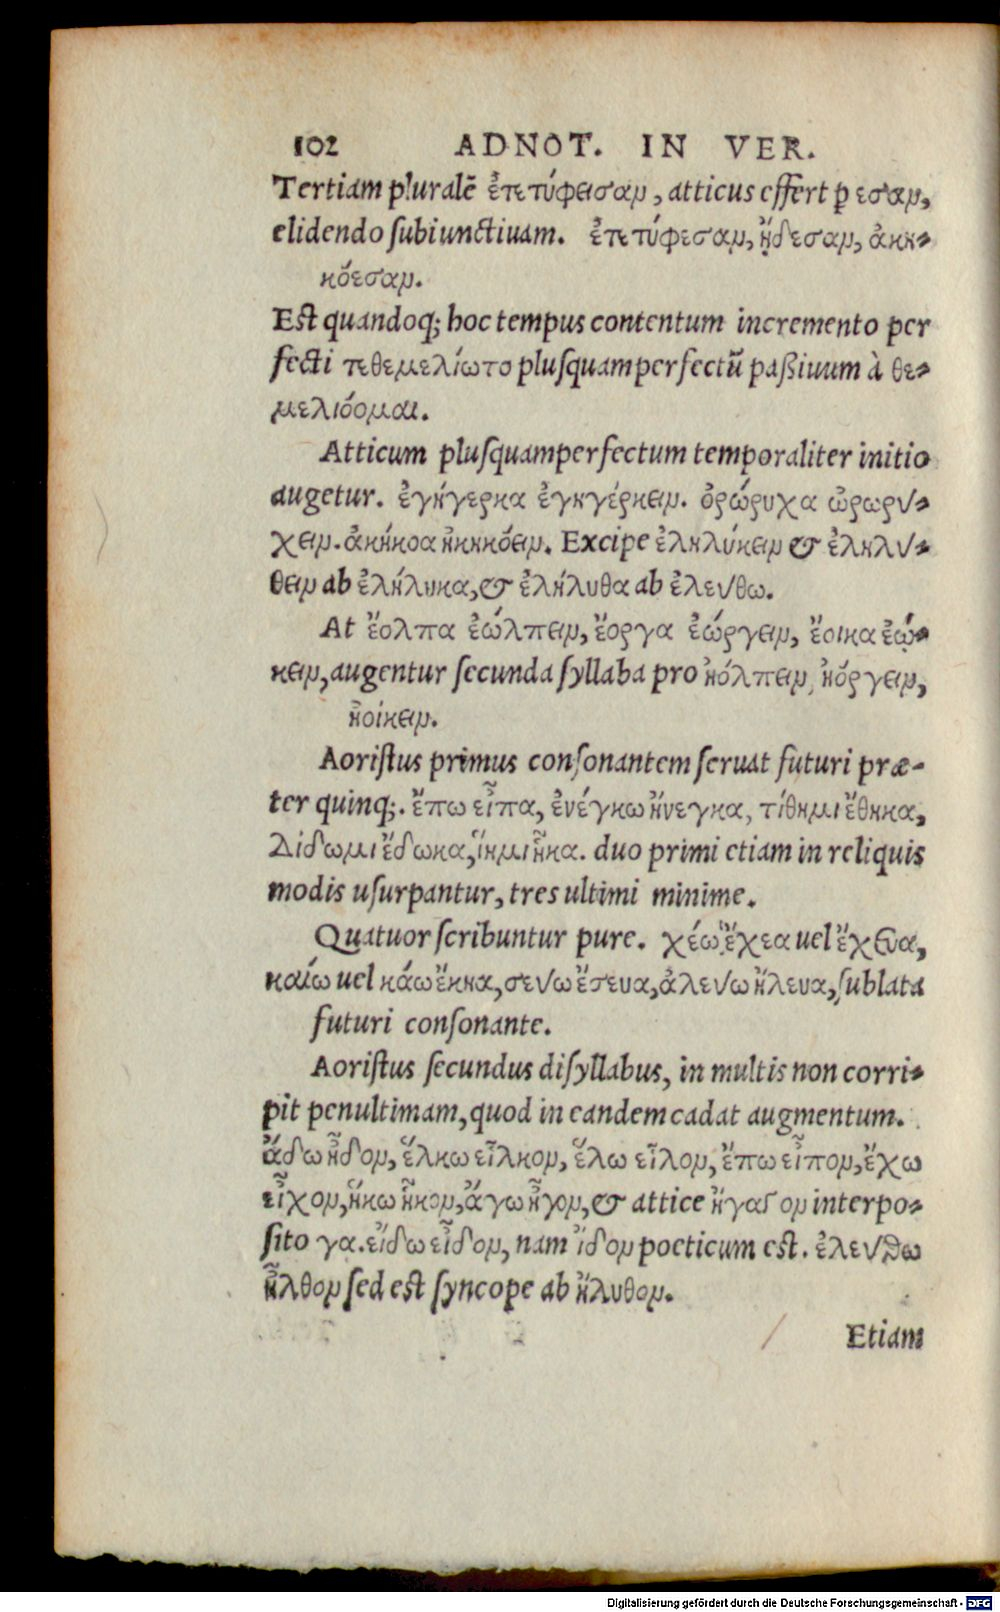 102 ADNOT. IN VER.
Tertiam pluralē ἐτετύφεισαν, atticus effert ꝑ εσαν,
elidendo subiunctiuam. ἐτετύφεσαν, ᾔδεσαν, ἀκη-
κόεσαν.
Est quandoq; hoc tempus contentum incremento per
fecti τεθεμελίωτο plusquamperfectū paßiuum à θε-
μελιόομαι.
Atticum plusquamperfectum temporaliter initio
augetur. ἐγήγερκα ἐγηγέρκειν. ὀρώρυχα ὠρωρύ-
χειν. ἀκήκοα ἠκηκόειν. Excipe ἐληλύκειν & ἐληλύ-
θειν ab ἐλήλυκα, & ἐλήλυθα ab ἐλεύθω.
At ἔολπα ἐώλπειν, ἔοργα ἐώργειν, ἔοικα ἐῴ-
κειν, augentur secunda syllaba pro ἠόλπειν, ἠόργειν,
ἠοίκειν.
Aoristus primus consonantem seruat futuri præ-
ter quinq;. ἔπω εἶπα, ἐνέγκω ἤνεγκα, τίθημι ἔθηκα,
Δίδωμι ἔδωκα, ἵημι ἧκα. duo primi etiam in reliquis
modis usurpantur, tres ultimi minime.
Quatuor scribuntur pure. χέω ἔχεα uel ἔχευα,
καίω uel κάω ἔκηα, σεύω ἔσευα, ἀλεύω ἤλευα, sublata
futuri consonante.
Aoristus secundus disyllabus, in multis non corri-
pit penultimam, quod in eandem cadat augmentum.
ἅδω ἧδον, ἕλκω εἷλκον, ἕλω εἷλον, ἔπω εἶπον, ἔχω
εἶχον, ἥκω ἧκον, ἄγω ἦγον, & attice ἤγαγον interpo-
sito γα. εἴδω εἶδον, nam ἴδον poeticum est. ἐλεύθω
ἦλθον sed est syncope ab ἤλυθον.
Etiam
Digitalisierung gefördert durch die Deutsche Forschungsgemeinschaft - DFG